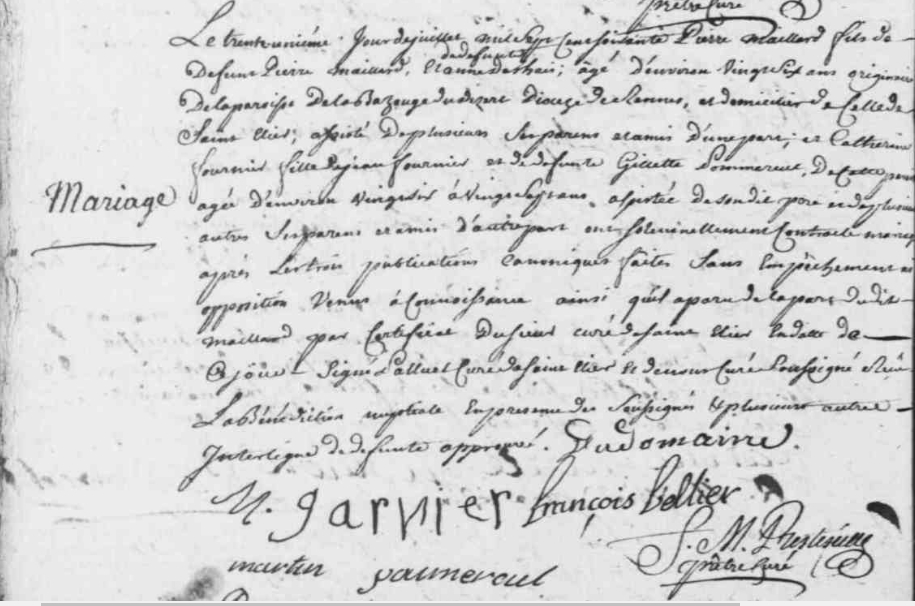 prêtre Curé
Le trente unième jour de juillet mil sept cent soixante Pierre maillard fils de
de defunte
Defunt Pierre maillard, et anne deshais; agé d'environ vingt six ans originaire
De la paroisse De la Bazouge du dezert Dioceze de Rennes, et domicilier de Celle de
Saint Elier; assisté De plusieurs Ses parens et amis d'une part; et Catherine
fournier fille de jean fournier et de defunte Gillette Pommeret, De cette
agée d'environ vingt six à vingt sept ans assistée de son dit pere et de plusieurs
autres Ses parens et amis d'autre part ont solemnellement Contracté mariage
après Les trois publications Canoniques faites Sans Empêchement ni
opposition Venus à Connoissance ainsi qu'il aparu de la part du dit
maillard par Certificat Du Sieur curé de saint Elier En datte de
Ce jour Signé Curé de saint Elier Et de nous Curé Soussigné
La Bénédiction nuptiale En presence des Soussignés & plusieurs autres
Interligne de defunte approuvé. Dudomaine
Mariage
N. Garnier françois Pellier
J. M.
martin prêtre Curé